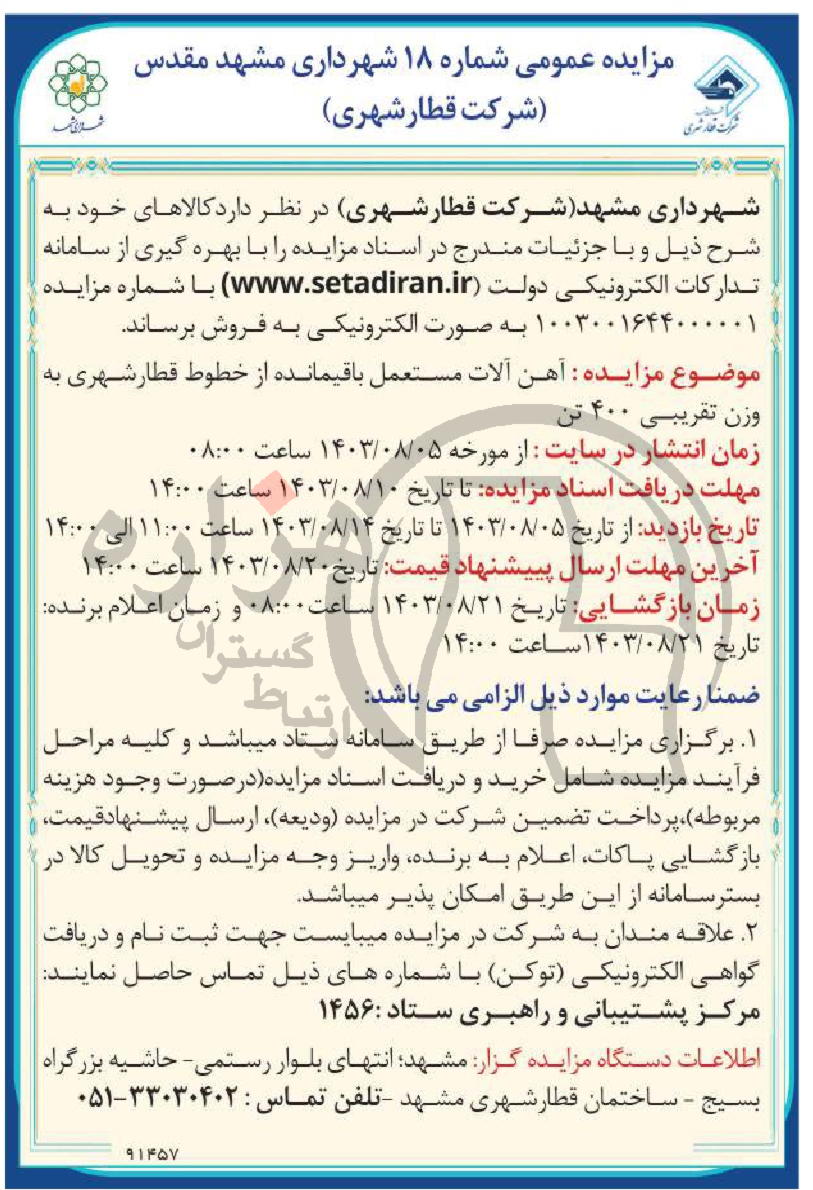 مزایده عمومی شماره ۱۸ شهرداری مشهد مقدس
(شرکت قطارشهری)
شهرداری مشهد
شرکت قطار شهری
شهرداری مشهد(شرکت قطارشهری) در نظر داردکالاهای خود به
شرح ذیل و با جزئیات مندرج در اسناد مزایده را با بهره گیری از سامانه
تدارکات الکترونیکی دولت (www.setadiran.ir) با شماره مزایده
۱۰۰۳۰۰۱۶۴۴۰۰۰۰۰۱ به صورت الکترونیکی به فروش برساند.
موضوع مزایده : آهن آلات مستعمل باقیمانده از خطوط قطارشهری به
وزن تقریبی ۴۰۰ تن
زمان انتشار در سایت : از مورخه ۱۴۰۳/۰۸/۰۵ ساعت ۰۸:۰۰
مهلت دریافت اسناد مزایده: تا تاریخ ۱۴۰۳/۰۸/۱۰ ساعت ۱۴:۰۰
تاریخ بازدید: از تاریخ ۱۴۰۳/۰۸/۰۵ تا تاریخ ۱۴۰۳/۰۸/۱۴ ساعت ۱۱:۰۰ الی ۱۴:۰۰
آخرین مهلت ارسال پییشنهاد قیمت: تاریخ۱۴۰۳/۰۸/۲۰ ساعت ۱۴:۰۰
زمان بازگشایی: تاریخ ۱۴۰۳/۰۸/۲۱ ساعت۰۸:۰۰ و زمان اعلام برنده:
تاریخ ۱۴۰۳/۰۸/۲۱ساعت ۱۴:۰۰
هزاره
گستران
ارتباط
ضمنا رعایت موارد ذیل الزامی می باشد:
۱. برگزاری مزایده صرفا از طریق سامانه ستاد میباشد و کلیه مراحل
فرآیند مزایده شامل خرید و دریافت اسناد مزایده(درصورت وجود هزینه
مربوطه)،پرداخت تضمین شرکت در مزایده (ودیعه)، ارسال پیشنهادقیمت،
بازگشایی پاکات، اعلام به برنده، واریز وجه مزایده و تحویل کالا در
بسترسامانه از این طریق امکان پذیر میباشد.
۲. علاقه مندان به شرکت در مزایده میبایست جهت ثبت نام و دریافت
گواهی الکترونیکی (توکن) با شماره های ذیل تماس حاصل نمایند:
مرکز پشتیبانی و راهبری ستاد :۱۴۵۶
اطلاعات دستگاه مزایده گزار: مشهد؛ انتهای بلوار رستمی- حاشیه بزرگراه
بسیج - ساختمان قطارشهری مشهد -تلفن تماس : ۳۳۰۳۰۴۰۲-۰۵۱
۹۱۴۵۷